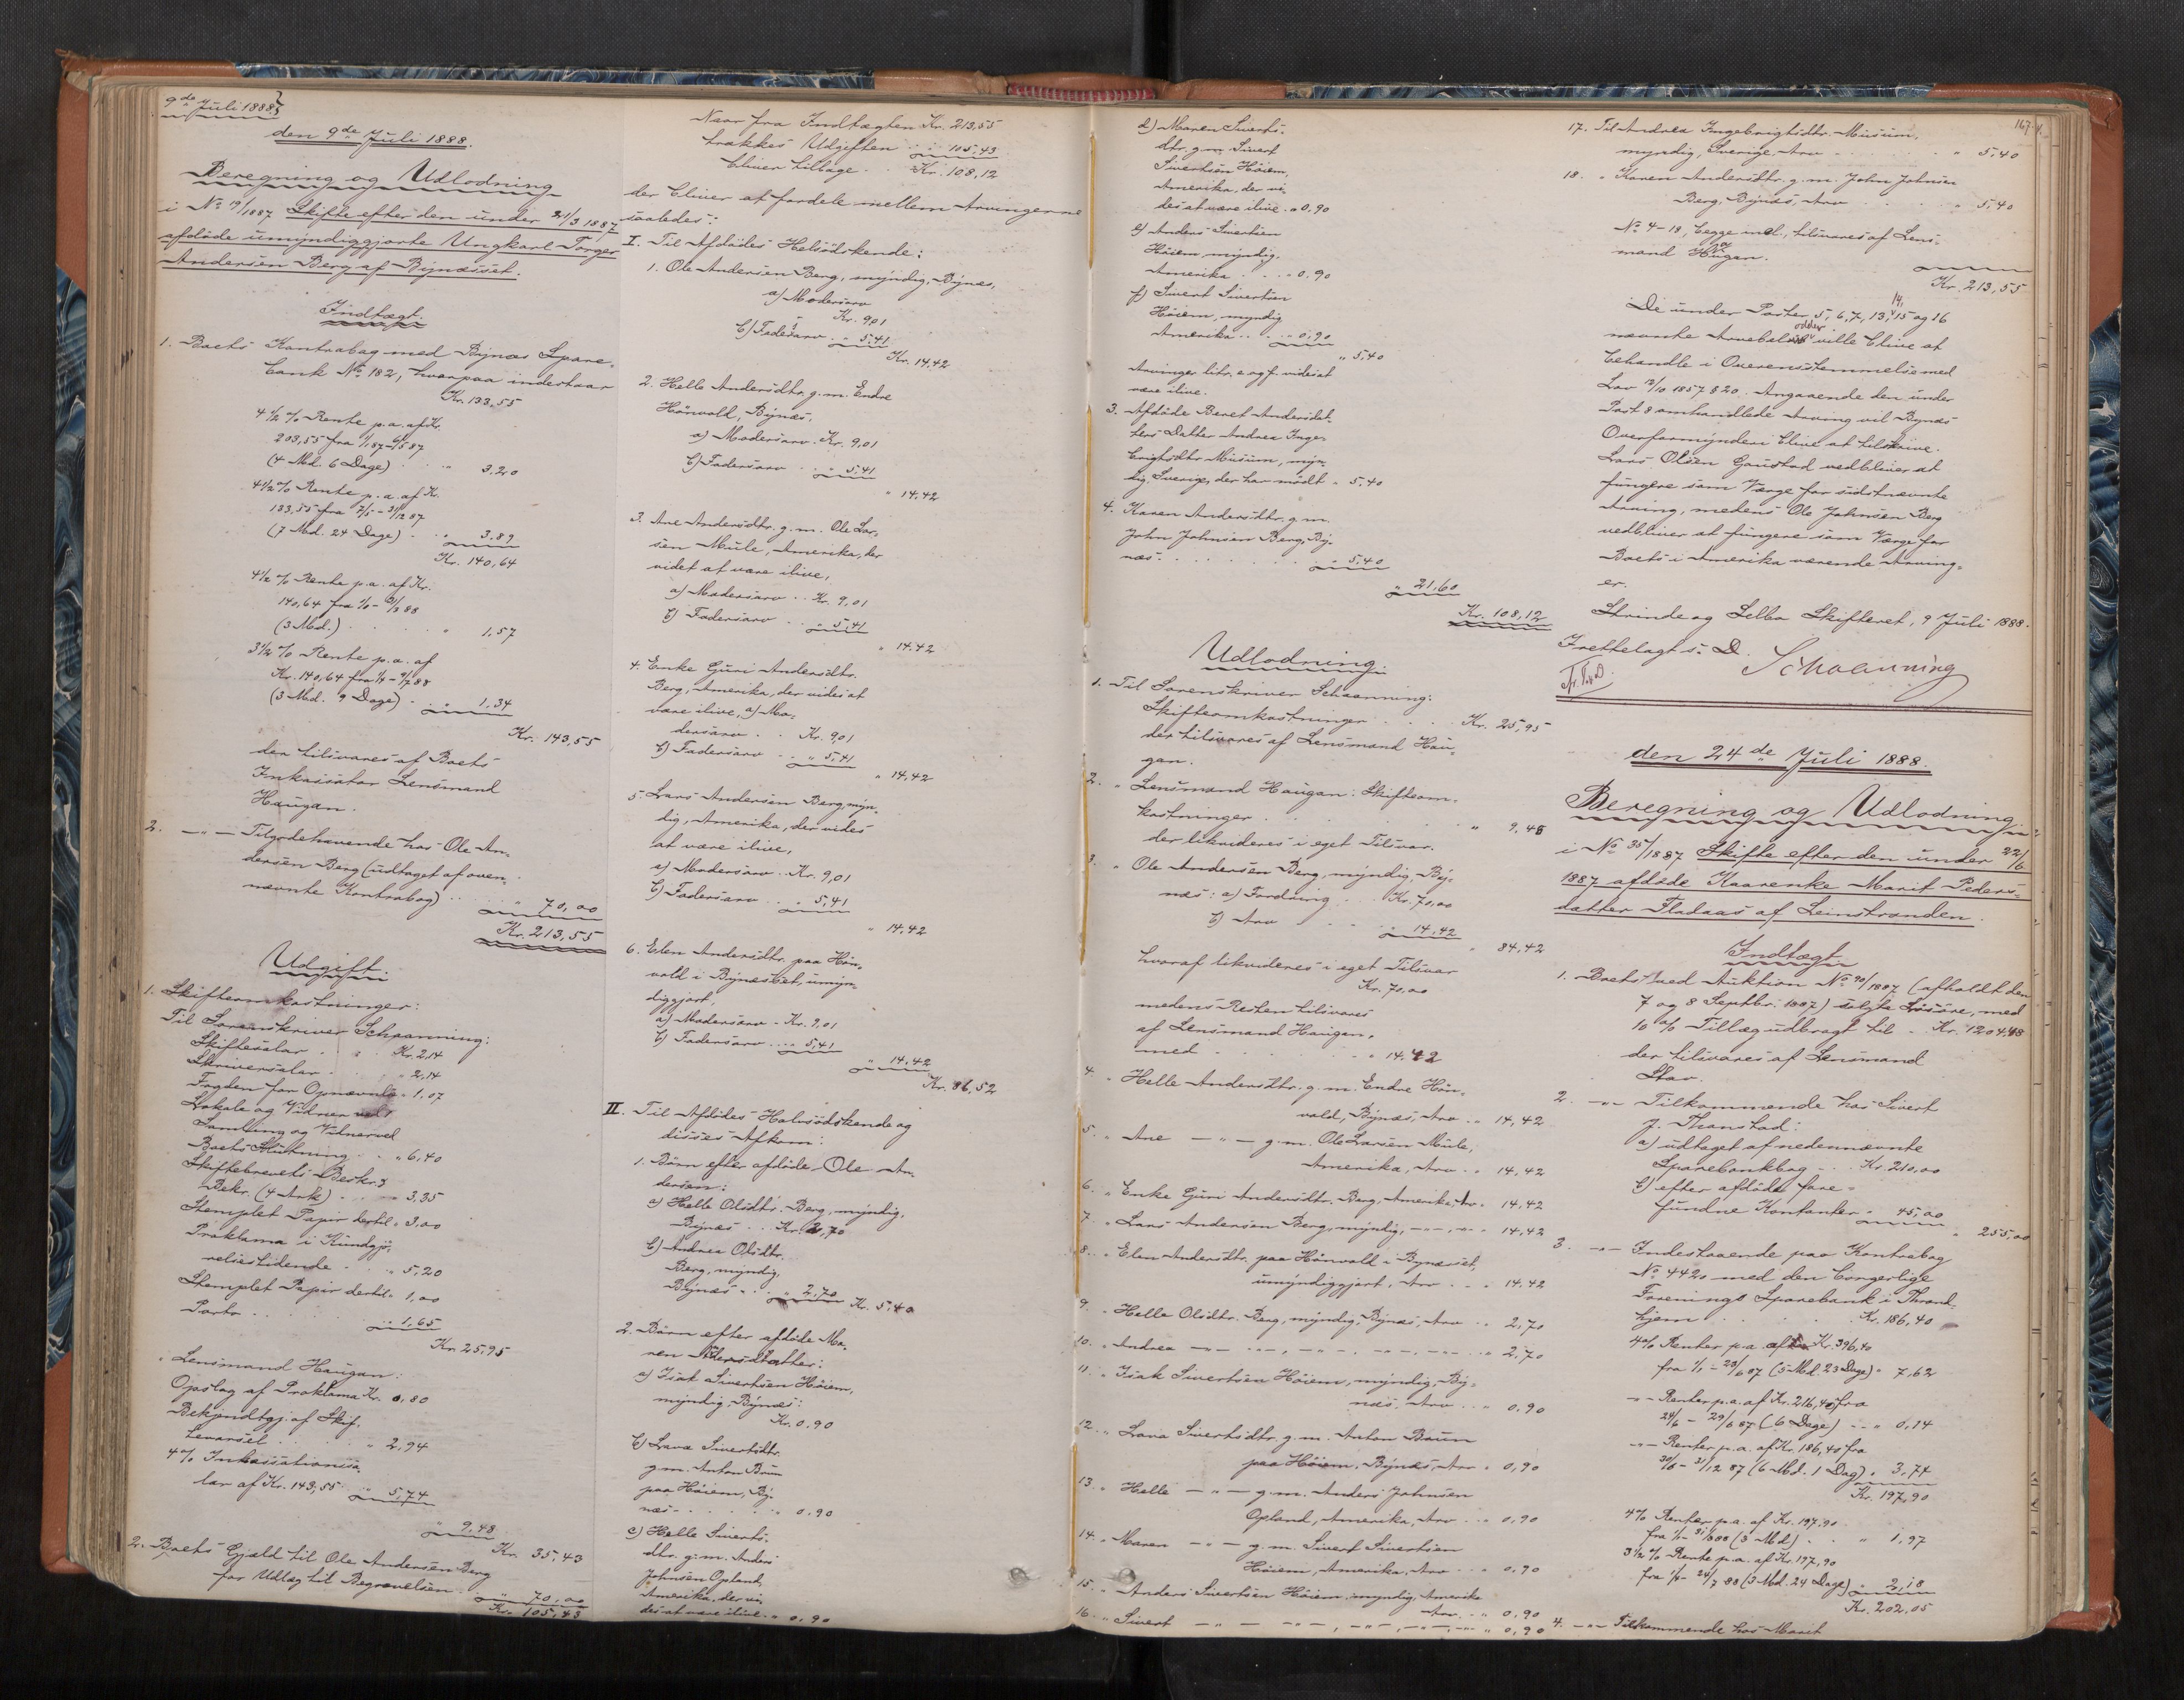 9de Juli 1888
den 9de Juli 1888.
Beregning og Udlodning
i No 19/1887 Skifte efter den under 21/3 1887
afdøde umyndiggjorte Ungkarl Torger
Andersen Berg af Bynæsset.
Indtægt.
1. Boets Kontrabog med Bynæs Spare-
bank No 182, hvorpaa indestaar
Kr. 133,55
4 1/2 % Rente p.a. af Kr.
203,55 fra 1/1 87 - 6/5 87
(4 Md. 6 Dage) . . " 3,20
4 1/2 % Rente p.a. af Kr.
133,55 fra 7/5 - 31/12 87
(7 Md. 24 Dage) . . 3,89
Kr. 140,64
4 1/2 % Rente p.a. af Kr.
140,64 fra 1/1 - 31/3 88
(3 Md.) . . . " 1,57
3 1/2 % Rente p.a. af
Kr. 140,64 fra 1/4 - 9/7 88
(3 Md. 9 Dage) . . 1,34
Kr. 143,55
der tilsvares af Boets
Inkassator Lensmand
Haugan.
2. —"— Tilgodehavende hos Ole An-
dersen Berg (udtaget af oven-
nævnte Kontrabog) . . " 70,00
Kr. 213,55
Udgift.
1. Skifteomkostninger:
Til Sorenskriver Schaanning:
Skiftesalær . . Kr. 2,14
Skriversalær . . " 2,14
Fogden for Opnævnte " 1,07
Lokale og Vidner ved
Samling og Vidner ved
Boets Slutning . . " 6,40
Skiftebrevets Beskr. &
Bekr. (4 Ark) . . " 3,35
Stemplet Papir dertil " 3,00
Proklama i Kundgjø-
relsestidende . . " 5,20
Stemplet Papir dertil " 1,00
Porto . . . " 1,65
Kr. 25,95
" Lensmand Haugan:
Opslag af Proklama Kr. 0,80
Bekjendtgj. af Skif-
tevarsel . . " 2,94
4 % Inkassationssa-
lær af Kr. 143,55 " 5,74
" 9,48
Kr. 35,43
2. Boets Gjæld til Ole Andersen Berg
for Udlæg til Begravelsen . . " 70,00
Kr. 105,43
Naar fra Indtægten Kr. 213,55
trækkes Udgiften . . " 105,43
bliver tilbage . . Kr. 108,12
der bliver at fordele mellem Arvingerne
saaledes:
I. Til Afdødes Helsødskende:
1. Ole Andersen Berg, myndig, Bynæs,
a) Modersarv
Kr. 9,01
b) Fadersarv . " 5,41
Kr. 14,42
2. Helle Andersdtr. g.m. Endre
Hønvold, Bynæs,
a) Modersarv . Kr. 9,01
b) Fadersarv . . " 5,41
" 14,42
3. Ane Andersdtr. g.m. Ole Lar-
sen Mule, Amerika, der
vides at være ilive,
a) Modersarv . . Kr. 9,01
b) Fadersarv . . " 5,41
" 14,42
4. Enke Guri Andersdtr.
Berg, Amerika, der vides at
være ilive, a) Mo-
dersarv . . Kr. 9,01
b) Fadersarv . . " 5,41
" 14,42
5. Lars Andersen Berg, myn-
dig, Amerika, der vides
at være ilive,
a) Modersarv . Kr. 9,01
b) Fadersarv . . " 5,41
" 14,42
6. Elen Andersdtr. paa Høn-
vold i Bynæsset, umyn-
diggjort,
a) Modersarv . Kr. 9,01
b) Fadersarv . . " 5,41
" 14,42
Kr. 86,52
II. Til Afdødes Halvsødskende og
disses Afkom:
1. Børn efter afdøde Ole An-
dersen:
a) Helle Olsdtr. Berg, myndig,
Bynæs . . Kr. 2,70
b) Andrea Olsdtr.
Berg, myndig,
Bynæs . . " 2,70 Kr. 5,40
2. Børn efter afdøde Ma-
ren Andersdatter:
a) Isak Sivertsen Høiem,
myndig, Bynæs:
Kr. 0,90
b) Lava Sivertsdtr.
g.m. Anton Brun
paa Høiem, By-
næs . . . " 0.90
c) Helle Siverts-
dtr. g.m. Anders
Johnsen Opland,
Amerika, der vi-
des at være ilive . " 0,90
d) Maren Siverts-
dtr. g.m. Sivert
Sivertsen Høiem,
Amerika, der vi-
des at være ilive . " 0,90
e) Anders Sivertsen
Høiem, myndig,
Amerika . . . " 0,90
f) Sivert Sivertsen
Høiem, myndig
Amerika . . . " 0,90
" 5,40
Arvinger litr. e og f. vides at
være ilive.
3. Afdøde Beret Andersdat-
ters Datter Andrea Inge-
brigtsdtr. Musum, myn-
dig, Sverige, der har mødt " 5,40
4. Karen Andersdtr. g.m.
John Johnsen Berg, By-
næs . . . . . " 5,40
" 21,60
Kr. 108,12
Udlodning.
1. Til Sorenskriver Schaanning:
Skifteomkostninger . . . Kr. 25,95
der tilsvares af Lensmand Hau-
gan.
2. " Lensmand Haugan: Skifteom-
kostninger . . . . " 9,48
der likvideres i eget Tilsvar.
3. " Ole Andersen Berg, myndig, By-
næs: a) Fordring . . Kr. 70,00
b) Arv . . " 14,42
" 84,42
hvoraf likvideres i eget Tilsvar
Kr. 70,00
medens Resten tilsvares
af Lensmand Haugan,
med . . . . " 14,42
4. " Helle Andersdtr. g.m. Endre Høn-
vold, Bynæs, Arv . . " 14,42
5. " Ane —"— g.m. Ole Larsen Mule,
Amerika, Arv . . " 14,42
6. " Enke Guri Andersdtr. Berg, Amerika, Arv " 14,42
7. " Lars Andersen Berg, myndig, —"—, —"— " 14,42
8. " Elen Andersdtr. paa Hønvold i Bynæsset,
umyndiggjort, Arv . . " 14,42
9. " Helle Olsdtr. Berg, myndig, Bynæs, Arv . . " 2,70
10. " Andrea —"— —"—, —"—, —"—, —"— " 2,70
11. " Isak Sivertsen Høiem, myndig, By-
næs, Arv . . " 0,90
12. " Lava Sivertsdtr. g.m. Anton Brun
paa Høiem, Bynæs, Arv . " 0,90
13. " Helle —"— g.m. Anders Johnsen
Opland, Amerika, Arv . . " 0,90
14. " Maren —"— g.m. Sivert Sivertsen
Høiem, Amerika, Arv . . " 0,90
15. " Anders Sivertsen Høiem, myndig, Amerika
Arv . . " 0,90
16. " Sivert —"— —"—, —"—, —"—, —"— " 0,90
167.
17. Til Andrea Ingebrigtsdtr. Musum,
myndig, Sverige, Arv . . . " 5,40
18. " Karen Andersdtr. g.m. John Johnsen
Berg, Bynæs, Arv . . . " 5,40
No 4-18, begge incl., tilsvares af Lens-
mand Haugan.
Kr. 213,55
De under Poster 5, 6, 7, 13, 14, 15 og 16
nævnte Arvebeløb ville blive at
behandle i Overensstemmelse med
Lov 12/10 1857 § 20. Angaaende den under
Post 8 omhandlede Arving vil Bynæs
Overformynderi blive at tilskrive.
Lars Olsen Gaustad vedbliver at
fungere som Værge for sidstnævnte
Arving, medens Ole Johnsen Berg
vedbliver at fungere som Værge for
Boets i Amerika værende Arving-
er.
Strinde og Selbo Skifteret, 9 Juli 1888.
Fremlagt s. D.
Schaanning
den 24de Juli 1888.
Beregning og Udlodning
i No 35/1887 Skifte efter den under 22/6
1887 afdøde Kaarenke Marit Peders-
datter Fladaas af Leinstranden.
Indtægt.
1. Boets ved Auktion No 90/1887 (afholdt den
7 og 8 Septbr. 1887) solgte Løsøre, med
10 % Tillæg udbragt til . Kr. 1204,48
der tilsvares af Lensmand
Stav.
2. —"— Tilkommende hos Sivert
J. Thanstad:
a) udtaget af nedennævnte
Sparebankbog . . Kr. 210,00
b) efter afdøde fore-
fundne Kontanter " 45,00
" 255,00
3. —"— Indestaaende paa Kontrabog
No 4420 med den borgerlige
Forenings Sparebank i Thrond-
hjem . . . . Kr. 186,40
4 % Renter p.a. af Kr. 396,40
fra 1/1 - 23/6 87 (5 Md. 23 Dage) " 7,62
—"— Renter p.a. af Kr. 216,40 fra
24/6 - 29/6 87 (6 Dage) . . " 0,14
—"— Renter p.a. af Kr. 186,40 fra
30/6 - 31/12 87 (6 Md. 1 Dag) " 3,74
Kr. 197,90
4 % Renter p.a. af Kr. 197,90
fra 1/1 - 31/3 88 (3 Md) . . " 1,97
3 1/2 % Rente p.a. af Kr. 197,90
fra 1/4 - 24/7 88 (3 Md. 24 Dage) " 2,18
Kr. 202,05
4. —"— Tilkommende hos Marit